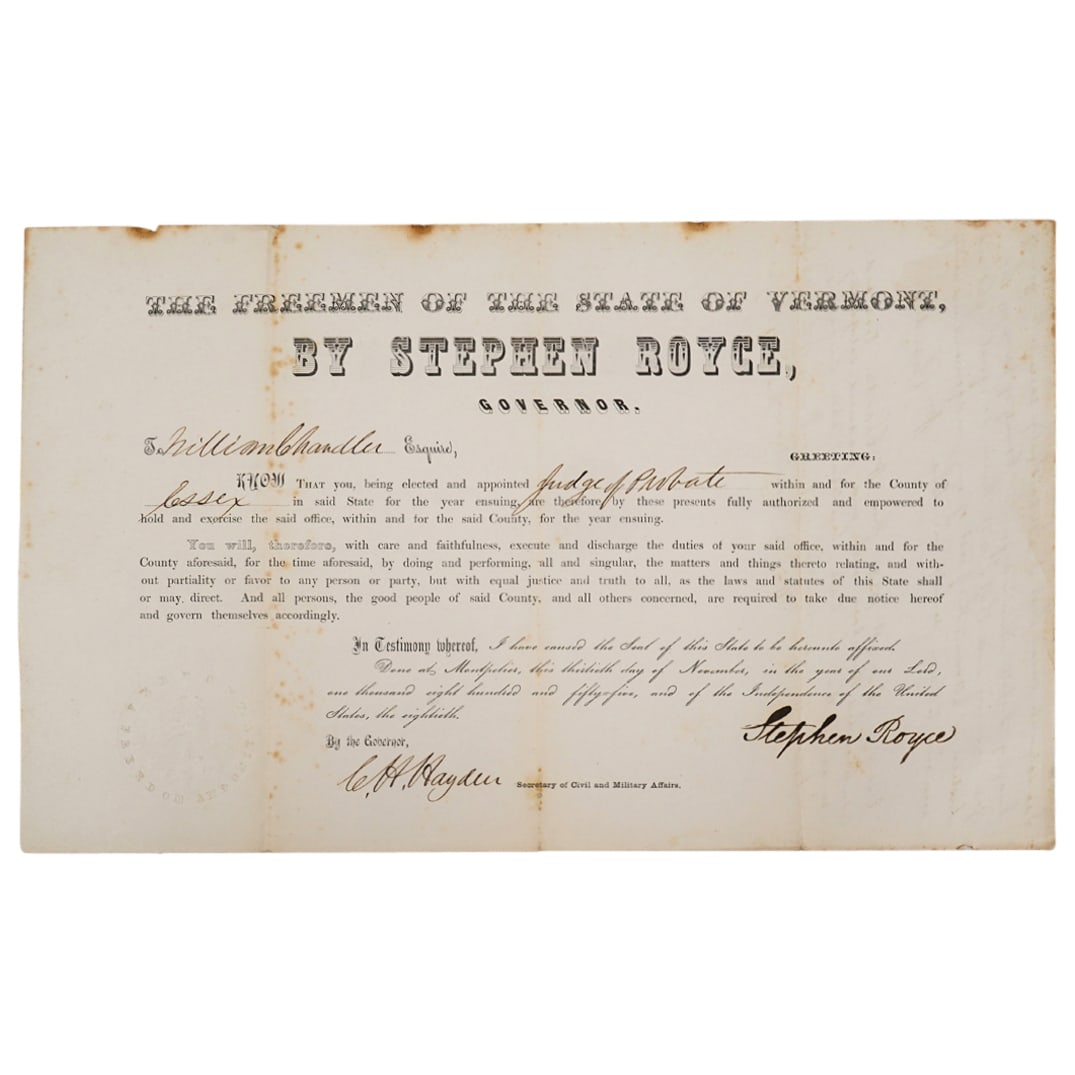 THE FREEMEN OF THE STATE OF VERMONT,
BY STEPHEN ROYCE,
GOVERNOR.
To William Chandler Esquire,
GREETING:
KNOW THAT you, being elected and appointed Judge of Probate within and for the County of
Essex in said State for the year ensuing, are therefore by these presents fully authorized and empowered to
hold and exercise the said office, within and for the said County, for the year ensuing.
You will, therefore, with care and faithfulness, execute and discharge the duties of your said office, within and for the
County aforesaid, for the time aforesaid, by doing and performing, all and singular, the matters and things thereto relating, and with-
out partiality or favor to any person or party, but with equal justice and truth to all, as the laws and statutes of this State shall
or may direct. And all persons, the good people of said County, and all others concerned, are required to take due notice hereof
and govern themselves accordingly.
In Testimony whereof, I have caused the Seal of this State to be hereunto affixed.
Done at Montpelier, this thirtieth day of November, in the year of our Lord,
one thousand eight hundred and fifty-five, and of the Independence of the United
States, the eightieth.
Stephen Royce
By the Governor,
C. H. Hayden Secretary of Civil and Military Affairs.